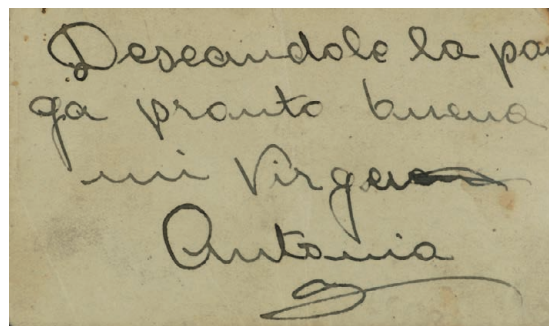 Deseandole la pa
ga pronto buena
mi Virgen
Antonia